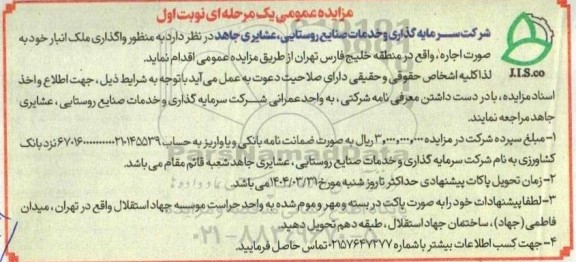 مزایده عمومی یک مرحله ای نوبت اول
شرکت سرمایه گذاری و خدمات صنایع روستایی، عشایری جاهد در نظر دارد به منظور واگذاری ملک انبار خود به
صورت اجاره، واقع در منطقه خلیج فارس تهران از طریق مزایده عمومی اقدام نماید.
لذا کلیه اشخاص حقوقی و حقیقی دارای صلاحیت دعوت به عمل می آید با توجه به شرایط ذیل، جهت اطلاع و اخذ
اسناد مزایده، با در دست داشتن معرفی نامه شرکتی، به واحد عمرانی شرکت سرمایه گذاری و خدمات صنایع روستایی، عشایری
جاهد مراجعه نمایند.
J.I.S.co
۱- مبلغ سپرده شرکت در مزایده ۳,۰۰۰,۰۰۰,۰۰۰ ریال به صورت ضمانت نامه بانکی و یا واریز به حساب نزد بانک
کشاورزی به نام شرکت سرمایه گذاری و خدمات صنایع روستایی، عشایری جاهد شعبه قائم مقام می باشد.
۲- زمان تحویل پاکات پیشنهادی حداکثر تا روز شنبه مورخ ۱۴۰۴/۰۳/۳۱ می باشد.
۳- لطفا پیشنهادات خود را به صورت پاکت در بسته و مهر و موم شده به واحد حراست موسسه جهاد استقلال واقع در تهران، میدان
فاطمی (جهاد)، ساختمان جهاد استقلال، طبقه دهم تحویل دهید.
۴- جهت کسب اطلاعات بیشتر با شماره ۰۲۱۵۷۶۴۷۲۷۷ تماس حاصل فرمایید.